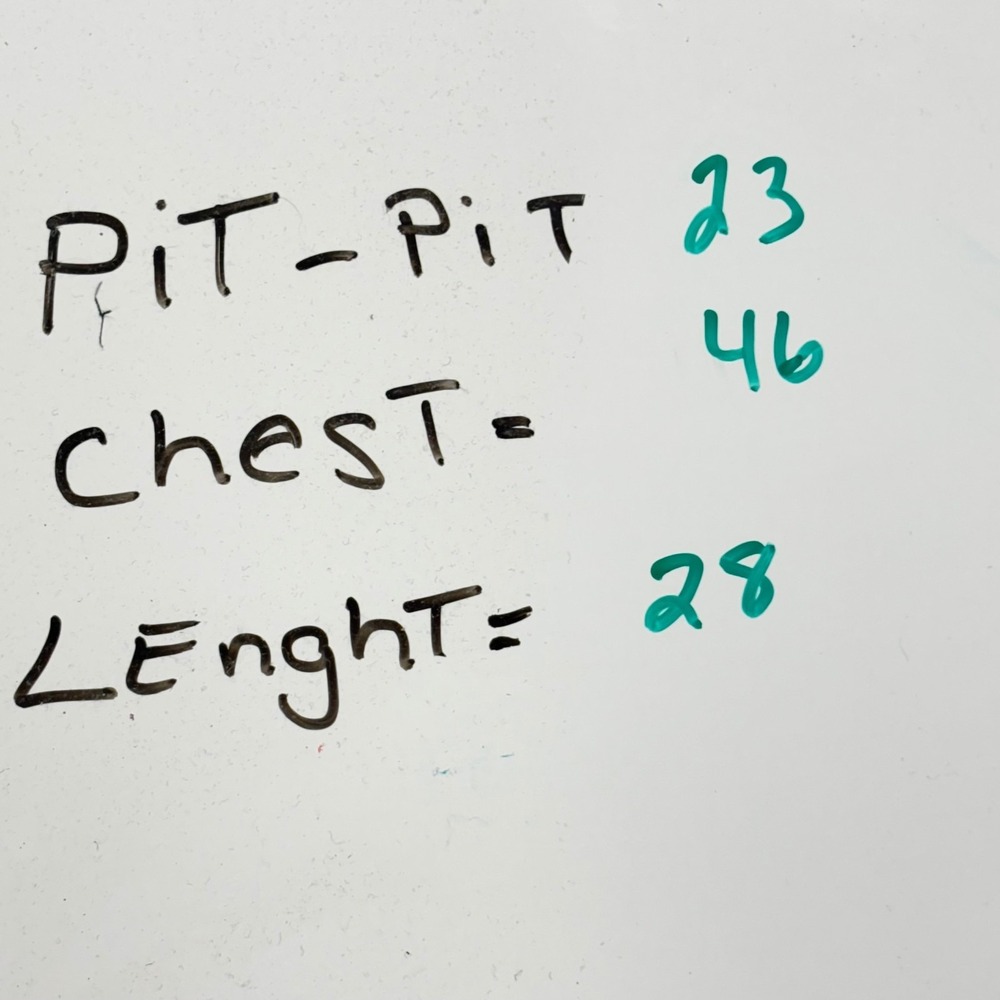 PiT - PiT 23
ChesT = 46
LEnghT = 28